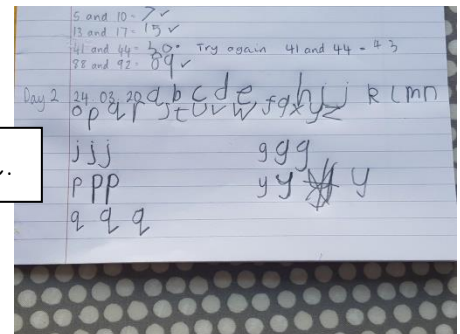 5 and 10 - 7 ✓
13 and 17 - 15 ✓
41 and 44 - 30• Try again 41 and 44 - 43
88 and 92 - 89 ✓
Day 2 24 03 20 a b c d e f g h i j k l m n
o p q r s t u v w x y z
j j j g g g
p p p y y y
q q q